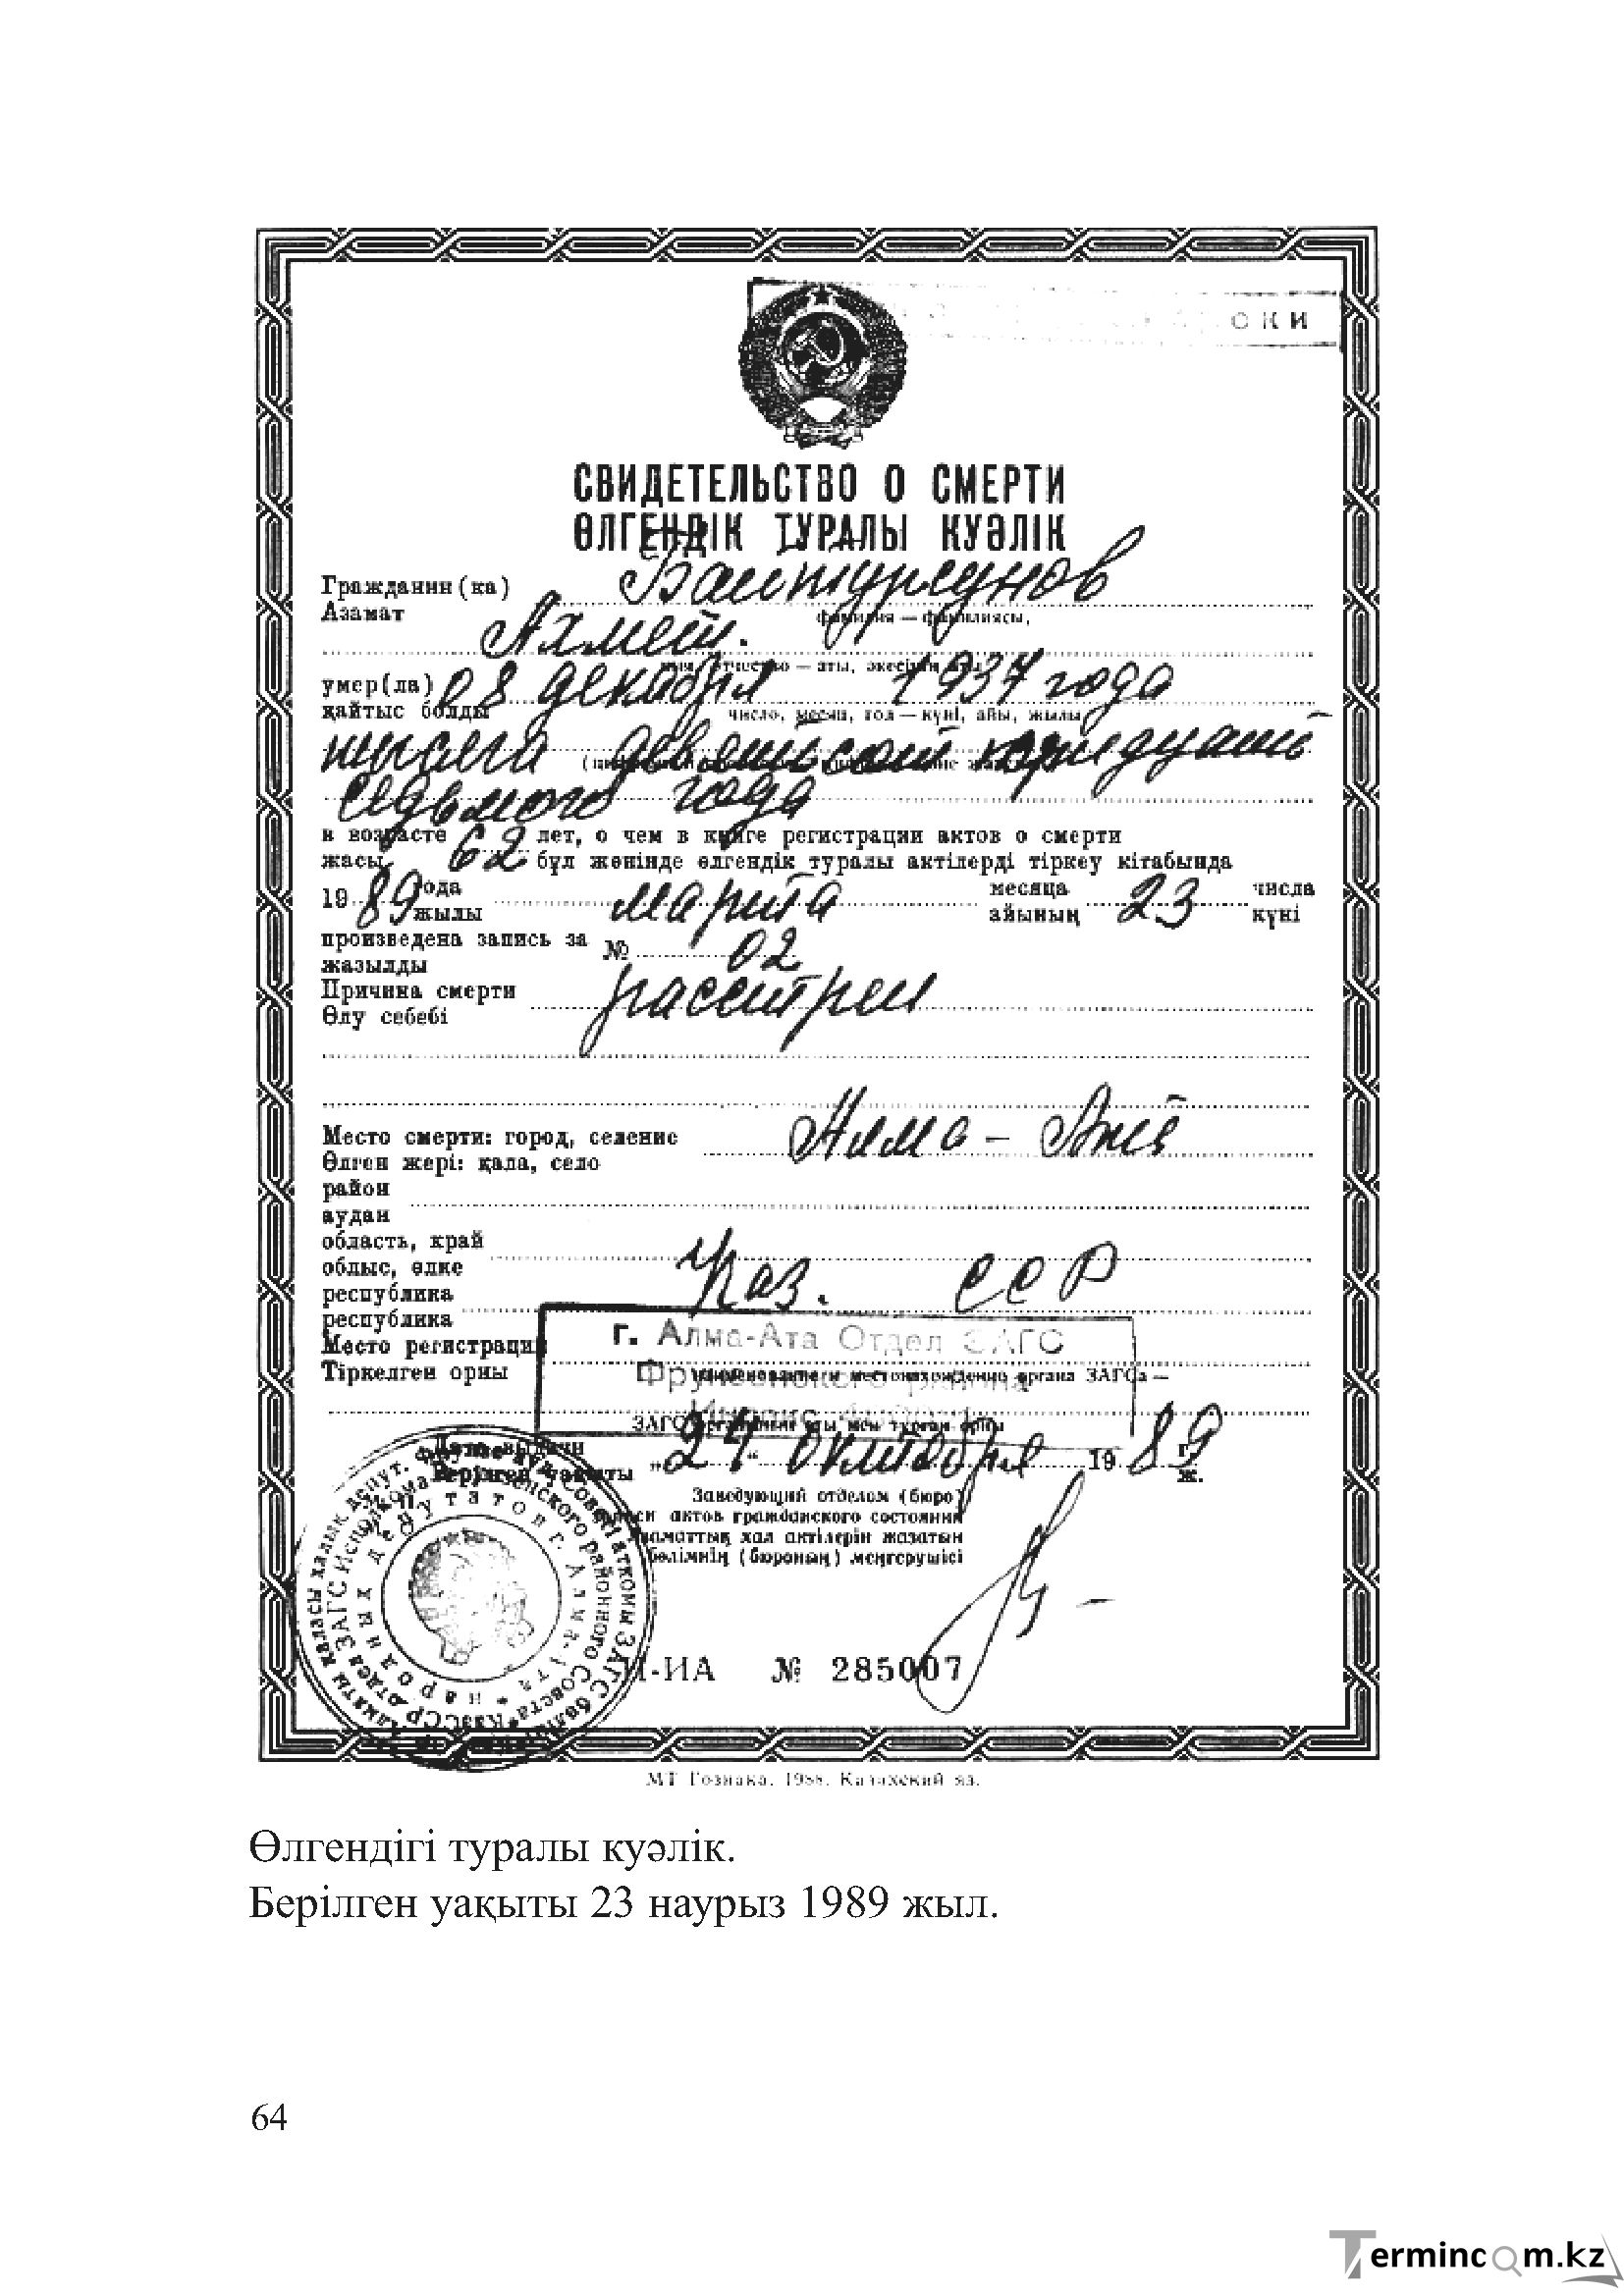 СВИДЕТЕЛЬСТВО О СМЕРТИ
ӨЛГЕНДІК ТУРАЛЫ КУӘЛІК
Гражданин (ка) Байтурсунов
Азамат
фамилия — фамилиясы,
Ахмет.
имя, отчество — аты, әкесінің аты
умер(ла) 8 декабря 1937 года
қайтыс болды
число, месяц, год — күні, айы, жылы
тысяча девятьсот тридцать
седьмого года
в возрасте 62 лет, о чем в книге регистрации актов о смерти
жасы бұл жөнінде өлгендік туралы актілерді тіркеу кітабында
19 89 года марта месяца 23 числа
жылы айының күні
произведена запись за № 02
жазылды
Причина смерти расстрел
Өлу себебі
Место смерти: город, селение Алма-Ата
Өлген жері: қала, село
район
аудан
область, край
облыс, өлке
Каз. ССР
республика
республика
г. Алма-Ата Отдел ЗАГС
Место регистрации
Тіркелген орны
Фрунзенского района
наименование и местонахождение органа ЗАГСа —
ЗАГС органының аты мен тұрған орны
Дата выдачи
Берілген уақыты „24“ октября 19 89 г.
ж.
Заведующий отделом (бюро)
записи актов гражданского состояния
азаматтық хал актілерін жазатын
бөлімнің (бюроның) меңгерушісі
-ИА № 285007
МТ Гознака. 1988. Казахский яз.
Өлгендігі туралы куәлік.
Берілген уақыты 23 наурыз 1989 жыл.
64
Termincom.kz